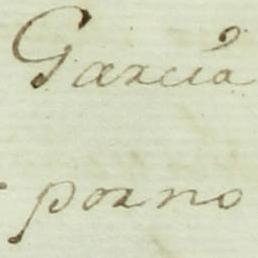 García
porno